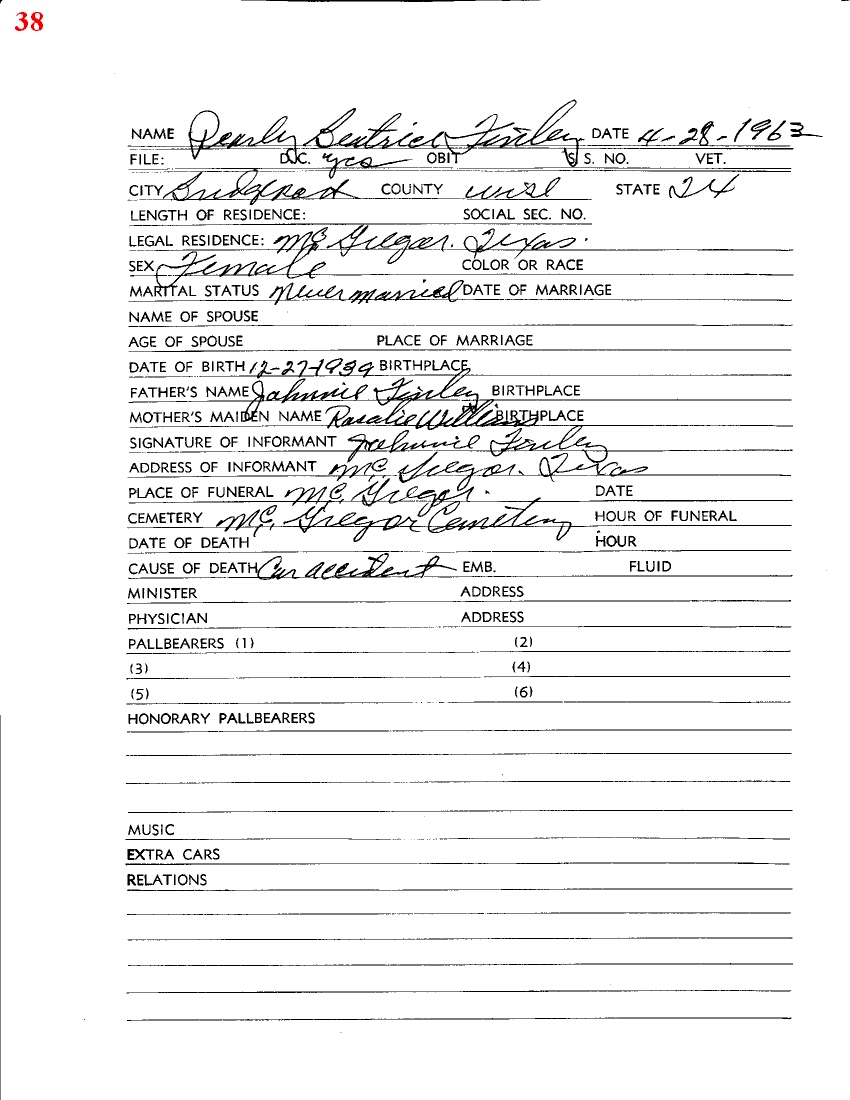 38
NAME Pearly Beatrice Finley DATE 4-28-1963
FILE: D.C. yes OBIT S. S. NO. VET.
CITY Bridgeport COUNTY wise STATE
LENGTH OF RESIDENCE: SOCIAL SEC. NO.
LEGAL RESIDENCE: Mc Gregor. Texas.
SEX Female COLOR OR RACE
MARITAL STATUS Never married DATE OF MARRIAGE
NAME OF SPOUSE
AGE OF SPOUSE PLACE OF MARRIAGE
DATE OF BIRTH 12-27-1939 BIRTHPLACE
FATHER'S NAME Johnnie Finley BIRTHPLACE
MOTHER'S MAIDEN NAME Rosalie Williams BIRTHPLACE
SIGNATURE OF INFORMANT Johnnie Finley
ADDRESS OF INFORMANT Mc Gregor. Texas
PLACE OF FUNERAL Mc. Gregor. DATE
CEMETERY Mc, Gregor Cemetery HOUR OF FUNERAL
DATE OF DEATH HOUR
CAUSE OF DEATH Car accident EMB. FLUID
MINISTER ADDRESS
PHYSICIAN ADDRESS
PALLBEARERS (1) (2)
(3) (4)
(5) (6)
HONORARY PALLBEARERS
MUSIC
EXTRA CARS
RELATIONS